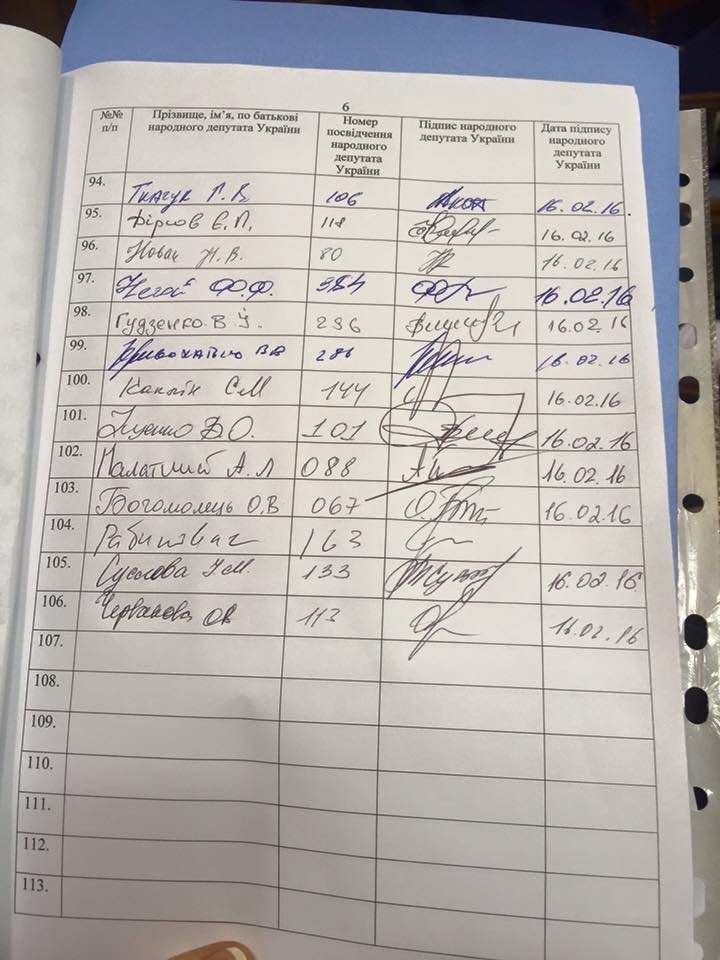 6
№№ п/п Прізвище, ім’я, по батькові народного депутата України Номер посвідчення народного депутата України Підпис народного депутата України Дата підпису народного депутата України
94. Ткачук Г. В. 106 16.02.16.
95. Фірсов Є.П. 118 16.02.16
96. Новак Н.В. 80 16.02.16
97. Негой Ф.Ф. 384 16.02.16
98. Гудзенко В.І. 296 16.02.16
99. 286 16.02.16
100. Каплін С.М 144 16.02.16
101. Луценко І.О. 101 16.02.16
102. Палатний А.Л 088 16.02.16
103. Богомолець О.В 067 16.02.16
104. Рабінович 163
105. Суслова І.М. 133 16.02.16
106. Черванова ОВ 113 16.02.16
107.
108.
109.
110.
111.
112.
113.